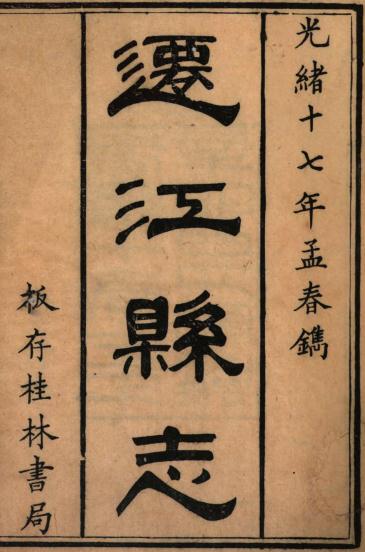 光緒十七年孟春鐫
遷江縣志
板存桂林書局